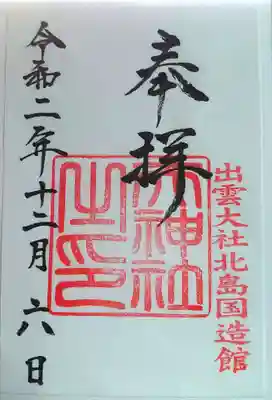 出雲大社北島国造館
奉拝
神社
之印
令和二年十二月六日